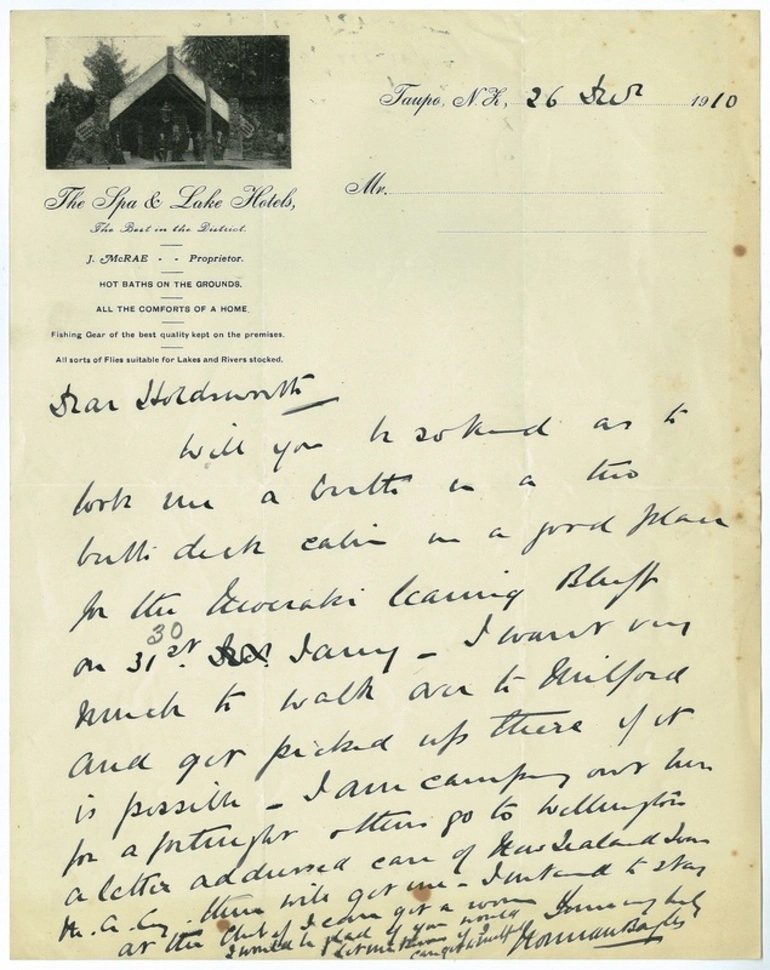 Taupo, N.Z., 26 Decr 1910
Mr.
The Spa & Lake Hotels,
The Best in the District.
J. McRAE - - Proprietor.
HOT BATHS ON THE GROUNDS.
ALL THE COMFORTS OF A HOME.
Fishing Gear of the best quality kept on the premises.
All sorts of Flies suitable for Lakes and Rivers stocked.
Dear Holdsworth
Will you be so kind as to
book me a berth in a two
berth deck cabin in a good place
for the Moeraki leaving Bluff
30
on 31st. Dec. Jany - I want very
much to walk over to Milford
and get picked up there if it
is possible - I am camping out here
for a fortnight then go to Wellington
a letter addressed care of New Zealand Loan
M. A. Coy. there will get me - I intend to stay
at the Club if I can get a room
I would be glad if you would
let me know if I
can get a berth